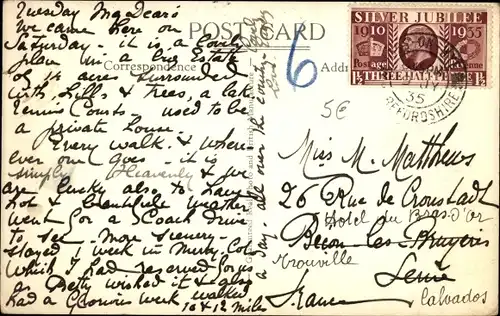 POST CARD
Correspondence
Addr
SILVER JUBILEE
1910 1935
Postage
THREE HALFPENCE
35
6
5€
Tuesday My Dears
We came here on
Saturday - it is a lovely
place in a big Estate
of acre surrounded
with hills & Trees, a lake
Tennis Courts used to be
a private house.
Every walk & when
ever one goes - it is
simply Heavenly & we
are lucky also to have
hot & beautiful weather
went for a Coach drive
to see - more scenery -
stayed 1 week in
which I had reserved
as Betty wished it & also
had a glorious week walked
10 & 12 miles
a day - all over the country
Miss M. Matthews
26 Rue de Cronstadt
Hotel du Bras-D'Or
Becon les Bruyeres
Trouville
Seine
France
Calvados